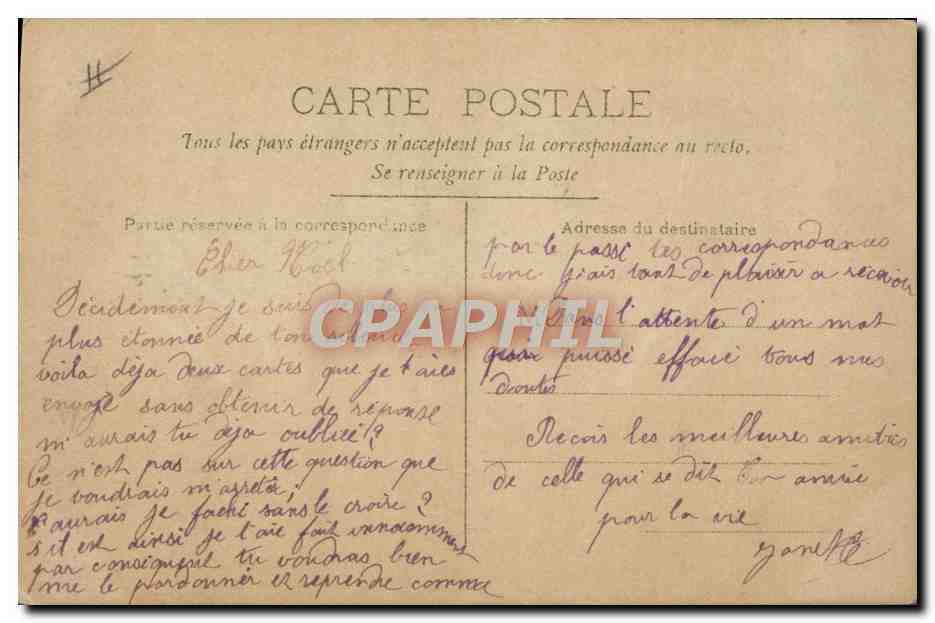 CARTE POSTALE
Tous les pays étrangers n'acceptent pas la correspondance au recto.
Se renseigner à la Poste
Partie réservée à la correspondance
Cher Noël
Décidément je suis de plus en
plus étonnée de ton silence
voila déja deux cartes que je t'aies
envoyé sans obtenir de réponse
m'aurais tu déja oubliée?
Ce n'est pas sur cette question que
je voudrais m'arrêter,
t'aurais je faché sans le croire?
s'il est ainsi je t'aie fait innocemment
par conséquent tu voudras bien
me le pardonner et reprendre comme
Adresse du destinataire
par le passé tes correspondances
donc j'ais tant de plaisir a recevoir
M Dans l'attente d'un mot
qui puisse effacé tous mes
doutes
Recois les meilleures amitiés
de celle qui se dit ton amie
pour la vie
CPAPHIL